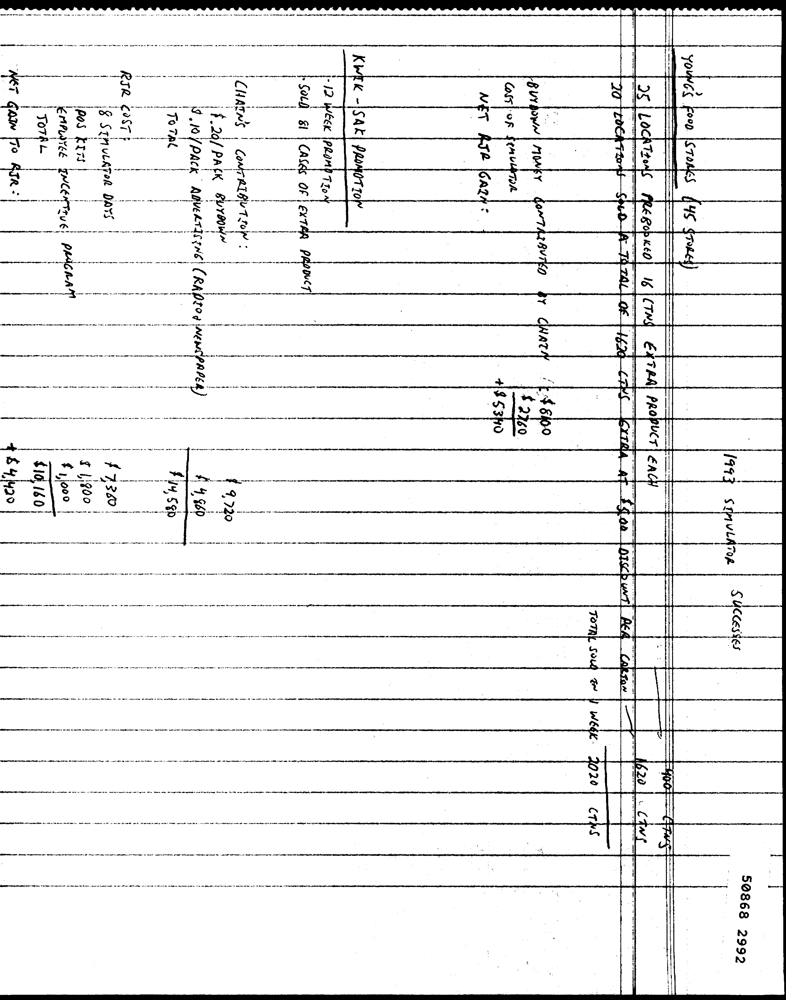 1993 SIMULATOR SUCCESSES
YOUNG'S FOOD STORES (45 STORES)
25 LOCATIONS PREBOOKED 16 CTNS EXTRA PRODUCT EACH 400 CTNS
20 LOCATIONS SOLD A TOTAL OF 1620 CTNS EXTRA AT $5.00 DISCOUNT PER CARTON 1620 CTNS
TOTAL SOLD IN 1 WEEK 2020 CTNS
BUYDOWN MONEY CONTRIBUTED BY CHAIN : $8100
COST OF SIMULATOR $2760
NET RJR GAIN: + $5340
KWIK-SAK PROMOTION
·12 WEEK PROMOTION
·SOLD 81 CASES OF EXTRA PRODUCT
CHAIN'S CONTRIBUTION:
$.20/PACK BUYDOWN $9,720
$.10/PACK ADVERTISING (RADIO & NEWSPAPER) $4,860
TOTAL $14,580
RJR COST:
8 SIMULATOR DAYS $7,360
POS KITS $1,800
EMPLOYEE INCENTIVE PROGRAM $1,000
TOTAL $10,160
NET GAIN TO RJR: + $4,420
50868 2992